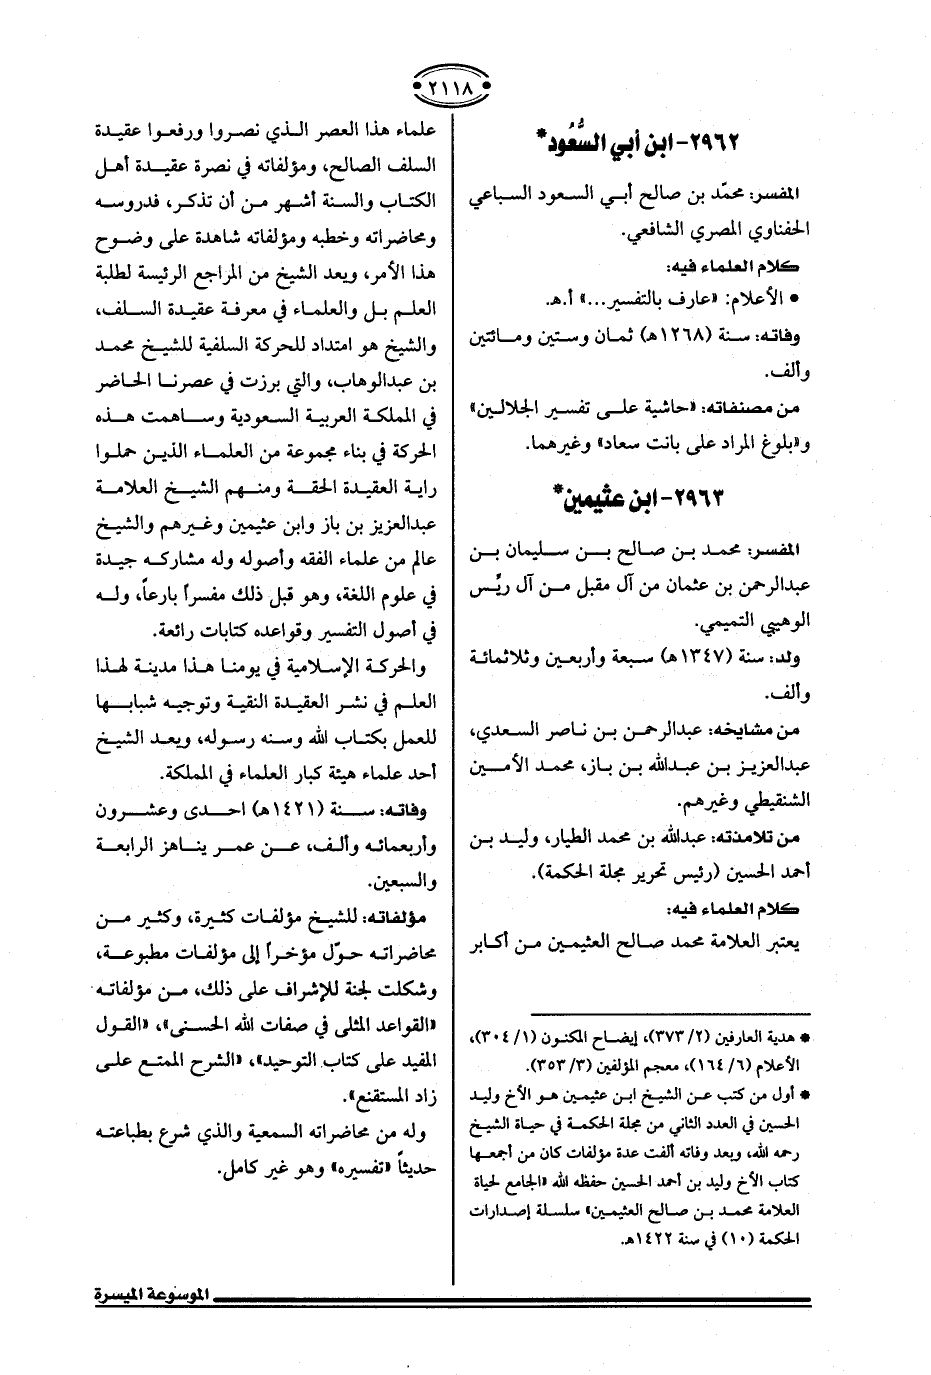 ٢١١٨
٢٩٦٢- ابن أبي السُّعُود*
المفسر: محمّد بن صالح أبي السعود السباعي
الحفناوي المصري الشافعي.
كلام العلماء فيه:
• الأعلام: «عارف بالتفسير...» أ.هـ.
وفاته: سنة (١٢٦٨هـ) ثمان وستين ومائتين
وألف.
من مصنفاته: «حاشية على تفسير الجلالين»
و«بلوغ المراد على بانت سعاد» وغيرهما.
٢٩٦٣- ابن عثيمين*
المفسر: محمد بن صالح بن سليمان بن
عبدالرحمن بن عثمان من آل مقبل من آل ريِّس
الوهيبي التميمي.
ولد: سنة (١٣٤٧هـ) سبعة وأربعين وثلاثمائة
وألف.
من مشايخه: عبدالرحمن بن ناصر السعدي،
عبدالعزيز بن عبدالله بن باز، محمد الأمين
الشنقيطي وغيرهم.
من تلامذته: عبدالله بن محمد الطيار، وليد بن
أحمد الحسين (رئيس تحرير مجلة الحكمة).
كلام العلماء فيه:
يعتبر العلامة محمد صالح العثيمين من أكابر
* هدية العارفين (٣٧٣/٢)، إيضاح المكنون (٣٠٤/١)،
الأعلام (١٦٤/٦)، معجم المؤلفين (٣٥٣/٣).
* أول من كتب عن الشيخ ابن عثيمين هو الأخ وليد
الحسين في العدد الثاني من مجلة الحكمة في حياة الشيخ
رحمه الله، وبعد وفاته ألفت عدة مؤلفات كان من أجمعها
كتاب الأخ وليد بن أحمد الحسين حفظه الله «الجامع لحياة
العلامة محمد بن صالح العثيمين» سلسلة إصدارات
الحكمة (١٠) في سنة ١٤٢٢هـ.
علماء هذا العصر الذي نصروا ورفعوا عقيدة
السلف الصالح، ومؤلفاته في نصرة عقيدة أهل
الكتاب والسنة أشهر من أن تذكر، فدروسه
ومحاضراته وخطبه ومؤلفاته شاهدة على وضوح
هذا الأمر، ويعد الشيخ من المراجع الرئيسة لطلبة
العلم بل والعلماء في معرفة عقيدة السلف،
والشيخ هو امتداد للحركة السلفية للشيخ محمد
بن عبدالوهاب، والتي برزت في عصرنا الحاضر
في المملكة العربية السعودية وساهمت هذه
الحركة في بناء مجموعة من العلماء الذين حملوا
راية العقيدة الحقة ومنهم الشيخ العلامة
عبدالعزيز بن باز وابن عثيمين وغيرهم والشيخ
عالم من علماء الفقه وأصوله وله مشاركه جيدة
في علوم اللغة، وهو قبل ذلك مفسراً بارعاً، وله
في أصول التفسير وقواعده كتابات رائعة.
والحركة الإسلامية في يومنا هذا مدينة لهذا
العلم في نشر العقيدة النقية وتوجيه شبابها
للعمل بكتاب الله وسنه رسوله، ويعد الشيخ
أحد علماء هيئة كبار العلماء في المملكة.
وفاته: سنة (١٤٢١هـ) احدى وعشرون
وأربعمائه وألف، عن عمر يناهز الرابعة
والسبعين.
مؤلفاته: للشيخ مؤلفات كثيرة، وكثير من
محاضراته حوّل مؤخراً إلى مؤلفات مطبوعة،
وشكلت لجنة للإشراف على ذلك، من مؤلفاته
«القواعد المثلى في صفات الله الحسنى»، «القول
المفيد على كتاب التوحيد»، «الشرح الممتع على
زاد المستقنع».
وله من محاضراته السمعية والذي شرع بطباعته
حديثاً «تفسيره» وهو غير كامل.
الموسوعة الميسرة